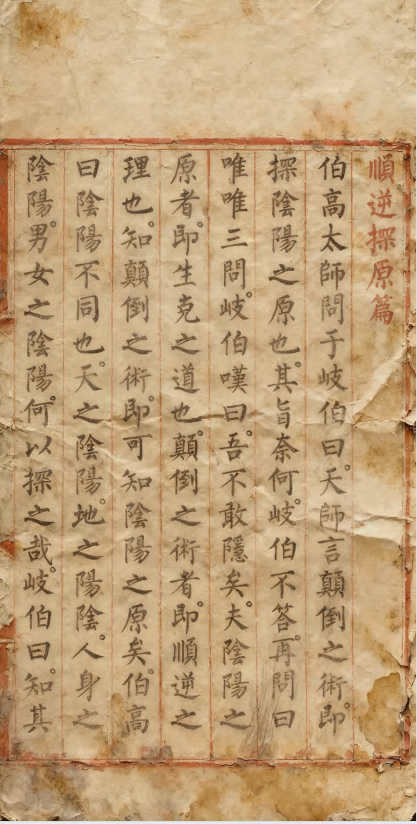 順逆探原篇
伯高太師問于岐伯曰天師言顛倒之術即
探陰陽之原也其旨奈何岐伯不答再問曰
唯唯三問岐伯嘆曰吾不敢隱矣夫陰陽之
原者即生克之道也顛倒之術者即順逆之
理也知顛倒之術即可知陰陽之原矣伯高
曰陰陽不同也天之陰陽地之陽陰人身之
陰陽男女之陰陽何以探之哉岐伯曰知其